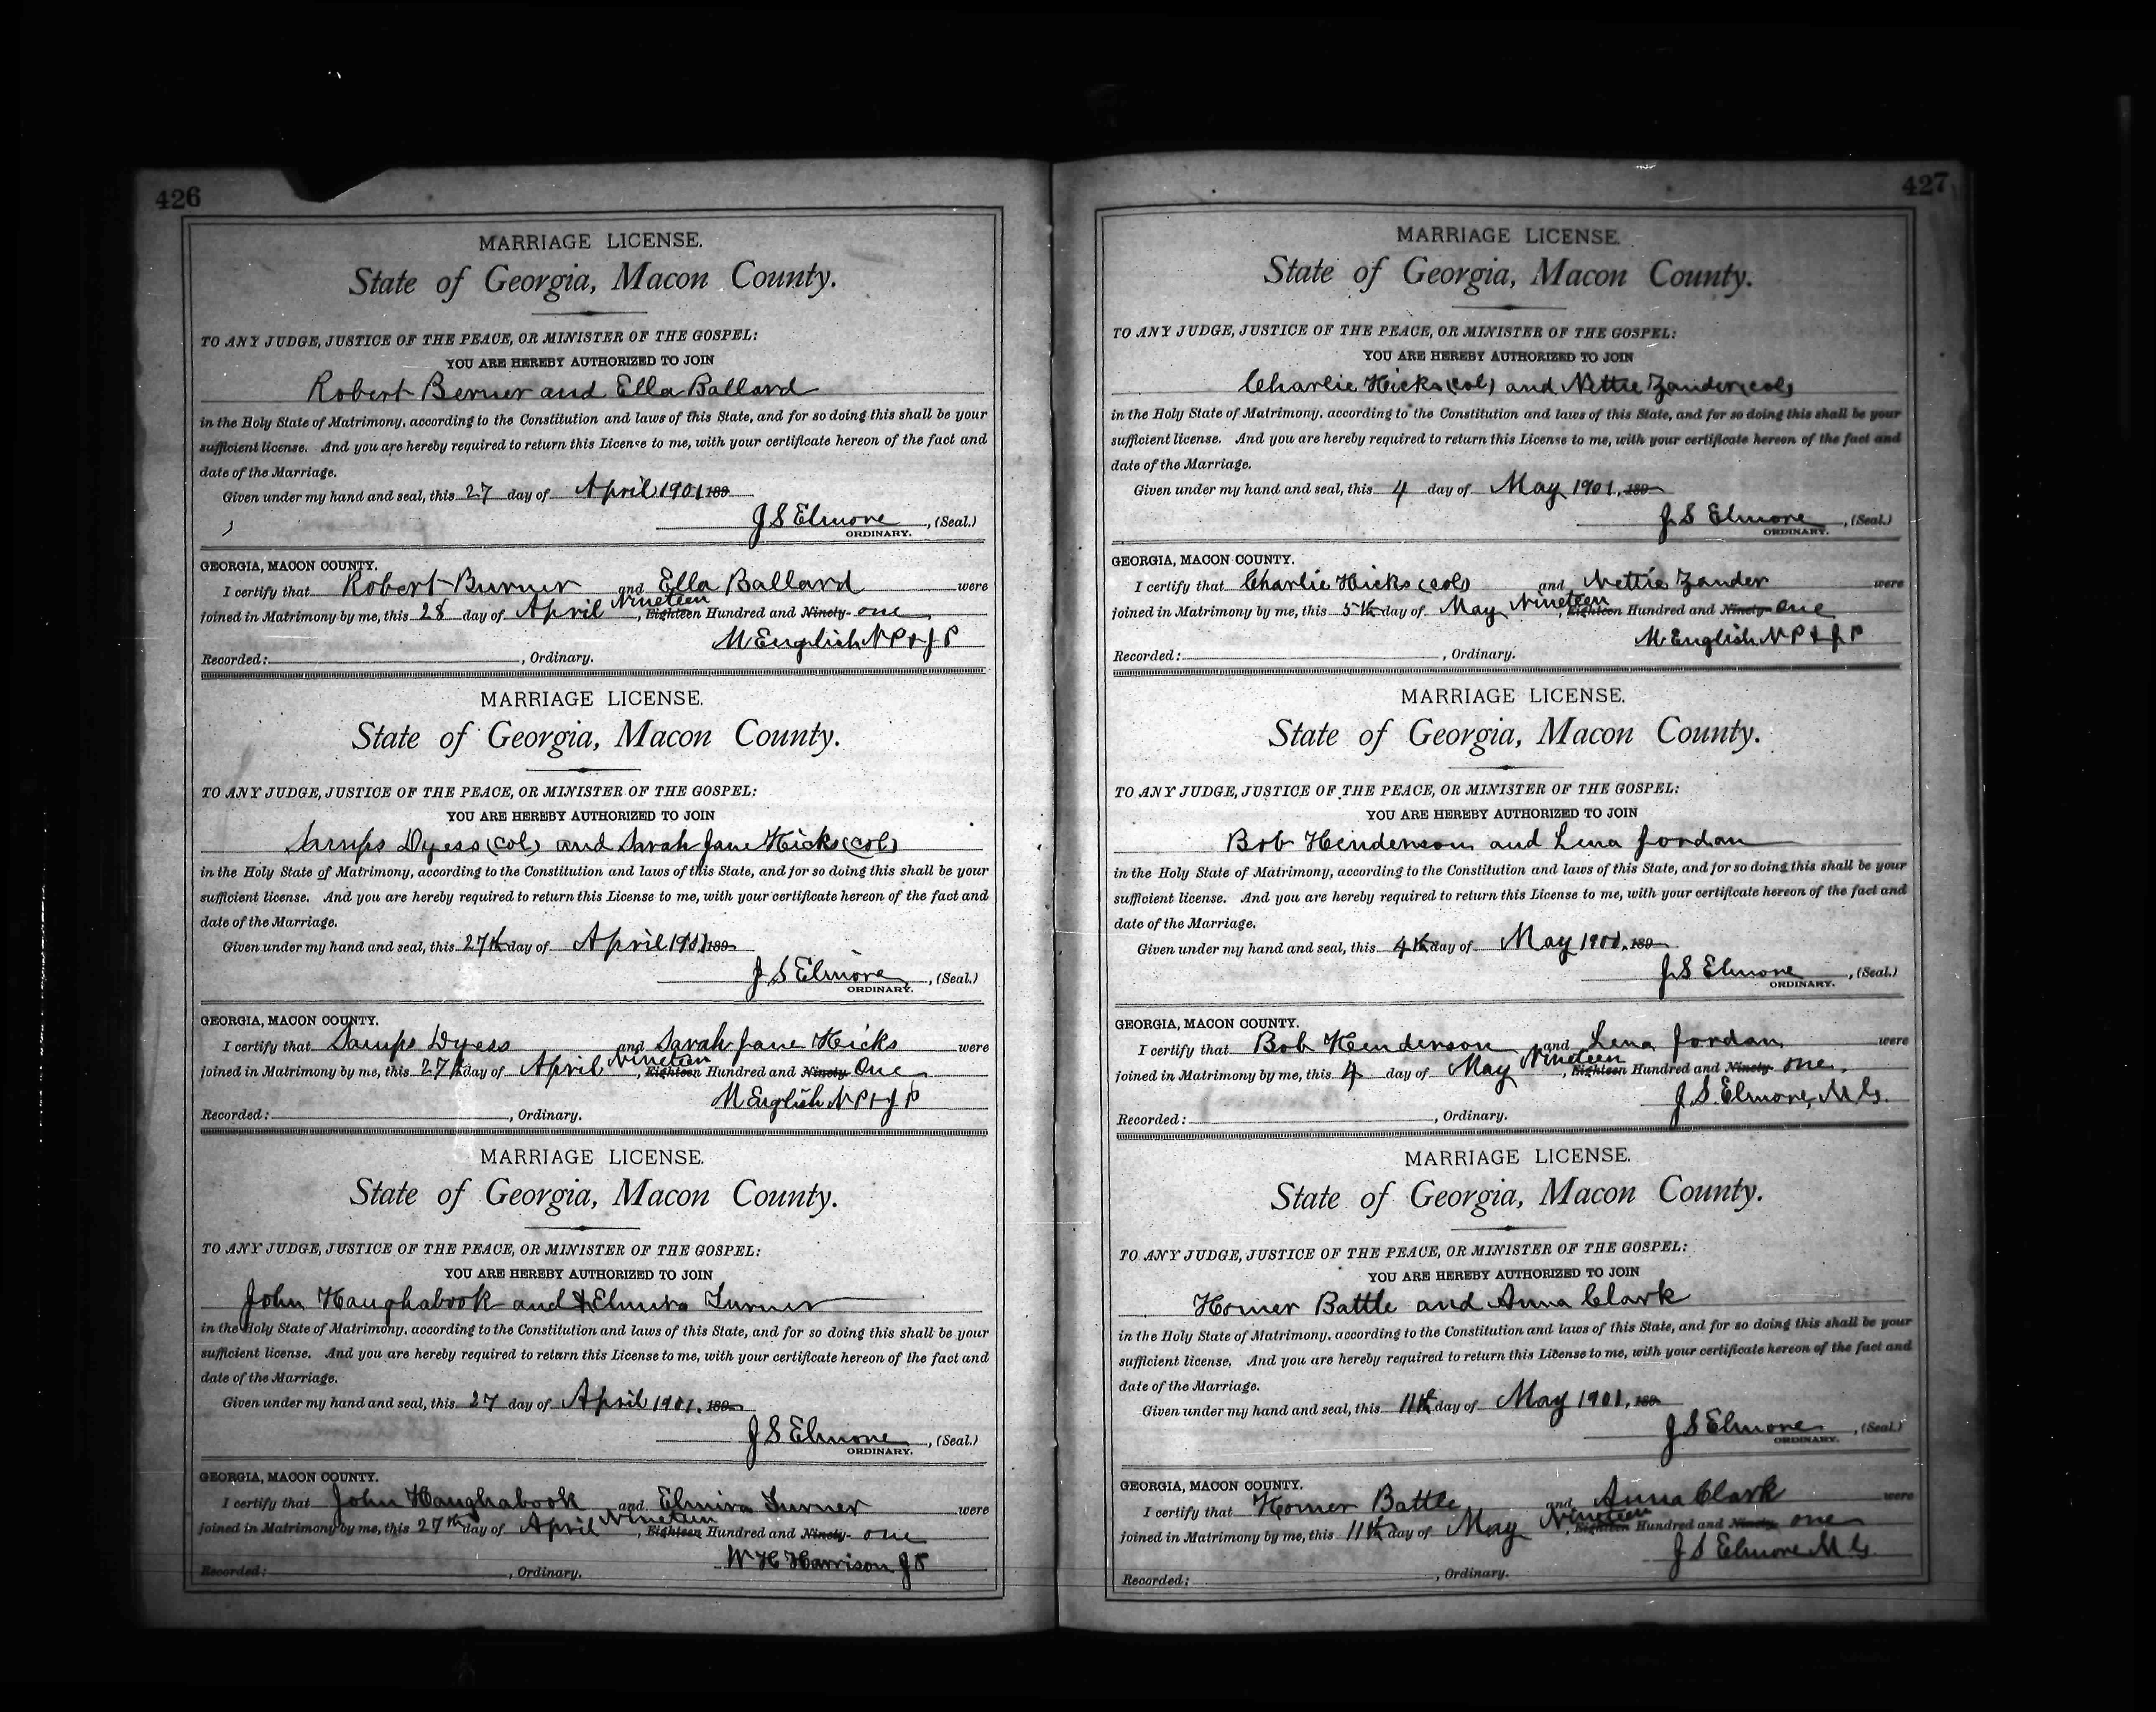 426
MARRIAGE LICENSE.
State of Georgia, Macon County.
TO ANY JUDGE, JUSTICE OF THE PEACE, OR MINISTER OF THE GOSPEL:
YOU ARE HEREBY AUTHORIZED TO JOIN
Robert Berner and Ella Ballard
in the Holy State of Matrimony, according to the Constitution and laws of this State, and for so doing this shall be your
sufficient license. And you are hereby required to return this License to me, with your certificate hereon of the fact and
date of the Marriage.
Given under my hand and seal, this 27 day of April 1901 189
J S Elmore, (Seal.)
ORDINARY.
GEORGIA, MACON COUNTY.
I certify that Robert Burner and Ella Ballard were
joined in Matrimony by me, this 28 day of April Nineteen, Eighteen Hundred and Ninety- one
M English N P & J P
Recorded: , Ordinary.
MARRIAGE LICENSE.
State of Georgia, Macon County.
TO ANY JUDGE, JUSTICE OF THE PEACE, OR MINISTER OF THE GOSPEL:
YOU ARE HEREBY AUTHORIZED TO JOIN
Dyess (col) and Sarah Jane Hicks (col)
in the Holy State of Matrimony, according to the Constitution and laws of this State, and for so doing this shall be your
sufficient license. And you are hereby required to return this License to me, with your certificate hereon of the fact and
date of the Marriage.
Given under my hand and seal, this 27th day of April 1901 189
J S Elmore, (Seal.)
ORDINARY.
GEORGIA, MACON COUNTY.
I certify that Dyess and Sarah Jane Hicks were
joined in Matrimony by me, this 27th day of April Nineteen, Eighteen Hundred and Ninety- One
M English N P & J P
Recorded: , Ordinary.
MARRIAGE LICENSE.
State of Georgia, Macon County.
TO ANY JUDGE, JUSTICE OF THE PEACE, OR MINISTER OF THE GOSPEL:
YOU ARE HEREBY AUTHORIZED TO JOIN
John Haughabook and Elmira Turner
in the Holy State of Matrimony, according to the Constitution and laws of this State, and for so doing this shall be your
sufficient license. And you are hereby required to return this License to me, with your certificate hereon of the fact and
date of the Marriage.
Given under my hand and seal, this 27 day of April 1901. 189
J S Elmore, (Seal.)
ORDINARY.
GEORGIA, MACON COUNTY.
I certify that John Haughabook and Elmira Turner were
joined in Matrimony by me, this 27th day of April Nineteen, Eighteen Hundred and Ninety- one
W H Harrison J P
Recorded: , Ordinary.
427
MARRIAGE LICENSE.
State of Georgia, Macon County.
TO ANY JUDGE, JUSTICE OF THE PEACE, OR MINISTER OF THE GOSPEL:
YOU ARE HEREBY AUTHORIZED TO JOIN
Charlie Hicks (col) and Nettie Zander (col)
in the Holy State of Matrimony, according to the Constitution and laws of this State, and for so doing this shall be your
sufficient license. And you are hereby required to return this License to me, with your certificate hereon of the fact and
date of the Marriage.
Given under my hand and seal, this 4 day of May 1901. 189
J. S Elmore, (Seal.)
ORDINARY.
GEORGIA, MACON COUNTY.
I certify that Charlie Hicks (col) and Nettie Zander were
joined in Matrimony by me, this 5th day of May Nineteen, Eighteen Hundred and Ninety- One
M English N P & J P
Recorded: , Ordinary.
MARRIAGE LICENSE.
State of Georgia, Macon County.
TO ANY JUDGE, JUSTICE OF THE PEACE, OR MINISTER OF THE GOSPEL:
YOU ARE HEREBY AUTHORIZED TO JOIN
Bob Henderson and Lena Jordan
in the Holy State of Matrimony, according to the Constitution and laws of this State, and for so doing this shall be your
sufficient license. And you are hereby required to return this License to me, with your certificate hereon of the fact and
date of the Marriage.
Given under my hand and seal, this 4th day of May 1901. 189
J. S Elmore, (Seal.)
ORDINARY.
GEORGIA, MACON COUNTY.
I certify that Bob Henderson and Lena Jordan were
joined in Matrimony by me, this 4 day of May Nineteen, Eighteen Hundred and Ninety- one.
J. S. Elmore, M G.
Recorded: , Ordinary.
MARRIAGE LICENSE.
State of Georgia, Macon County.
TO ANY JUDGE, JUSTICE OF THE PEACE, OR MINISTER OF THE GOSPEL:
YOU ARE HEREBY AUTHORIZED TO JOIN
Homer Battle and Anna Clark
in the Holy State of Matrimony, according to the Constitution and laws of this State, and for so doing this shall be your
sufficient license. And you are hereby required to return this License to me, with your certificate hereon of the fact and
date of the Marriage.
Given under my hand and seal, this 11th day of May 1901. 189
J S Elmore, (Seal.)
ORDINARY.
GEORGIA, MACON COUNTY.
I certify that Homer Battle and Anna Clark were
joined in Matrimony by me, this 11th day of May Nineteen, Eighteen Hundred and Ninety- one
J S Elmore M G.
Recorded: , Ordinary.